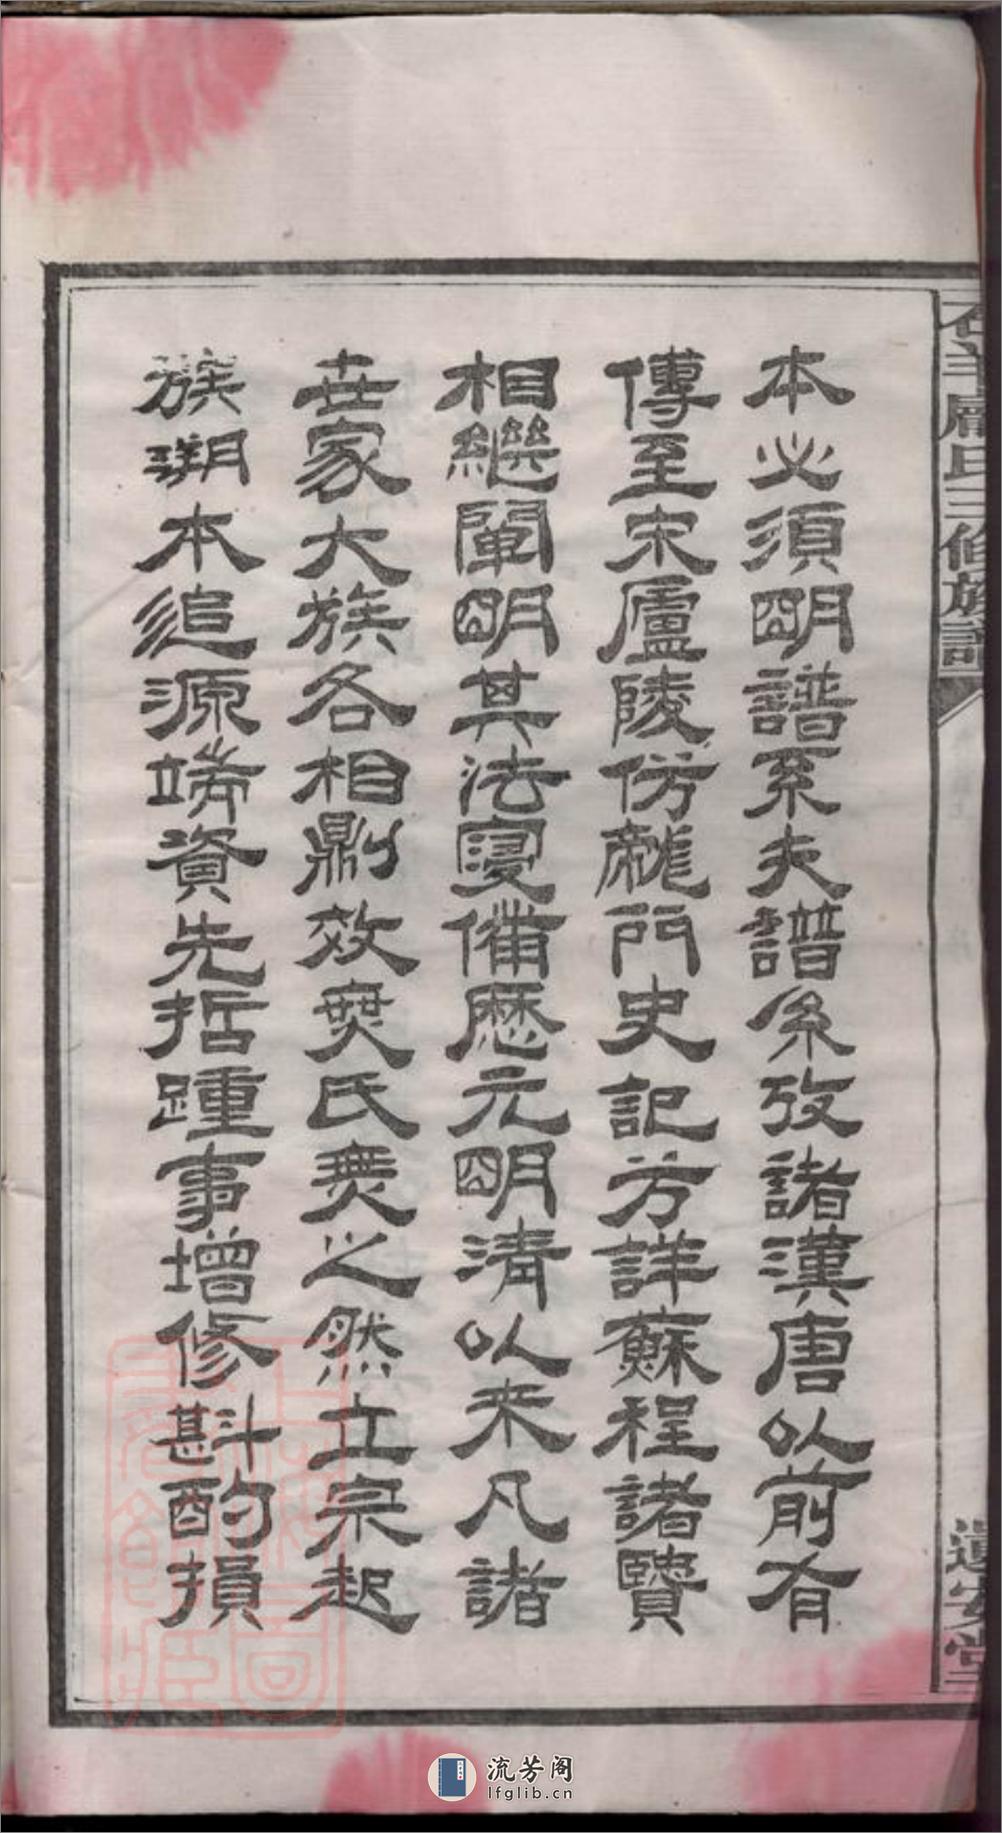 石羊龐氏三修族譜
遺安堂
本必須明譜系夫譜系攷諸漢唐以前有
傳至宋廬陵仿龍門史記方詳蘇程諸賢
相繼闡明其法寖備歷元明清以來凡諸
世家大族各相則效無氏無之然立宗起
族溯本追源端資先哲踵事增修斟酌損
流芳阁
lfglib.cn